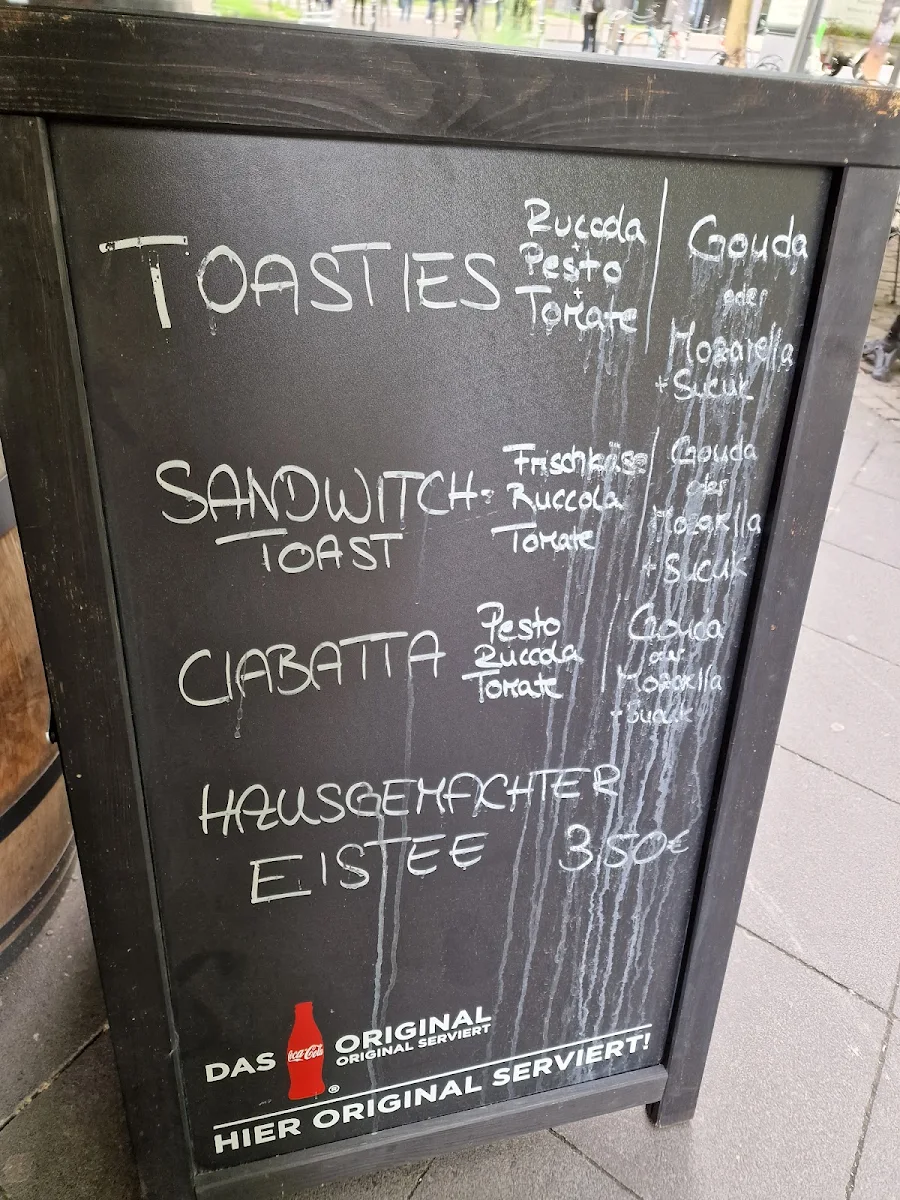 TOASTIES
Ruccola
+
Pesto
+
Tomate
Gouda
oder
Mozarella
+ Sucuk
SANDWITCH-
TOAST
Frischkäse
Ruccola
Tomate
Gouda
oder
Mozarella
+ Sucuk
CIABATTA
Pesto
Ruccola
Tomate
Gouda
oder
Mozarella
+ Sucuk
HAUSGEMACHTER
EISTEE 3,50€
DAS Coca-Cola ® ORIGINAL
ORIGINAL SERVIERT
HIER ORIGINAL SERVIERT!